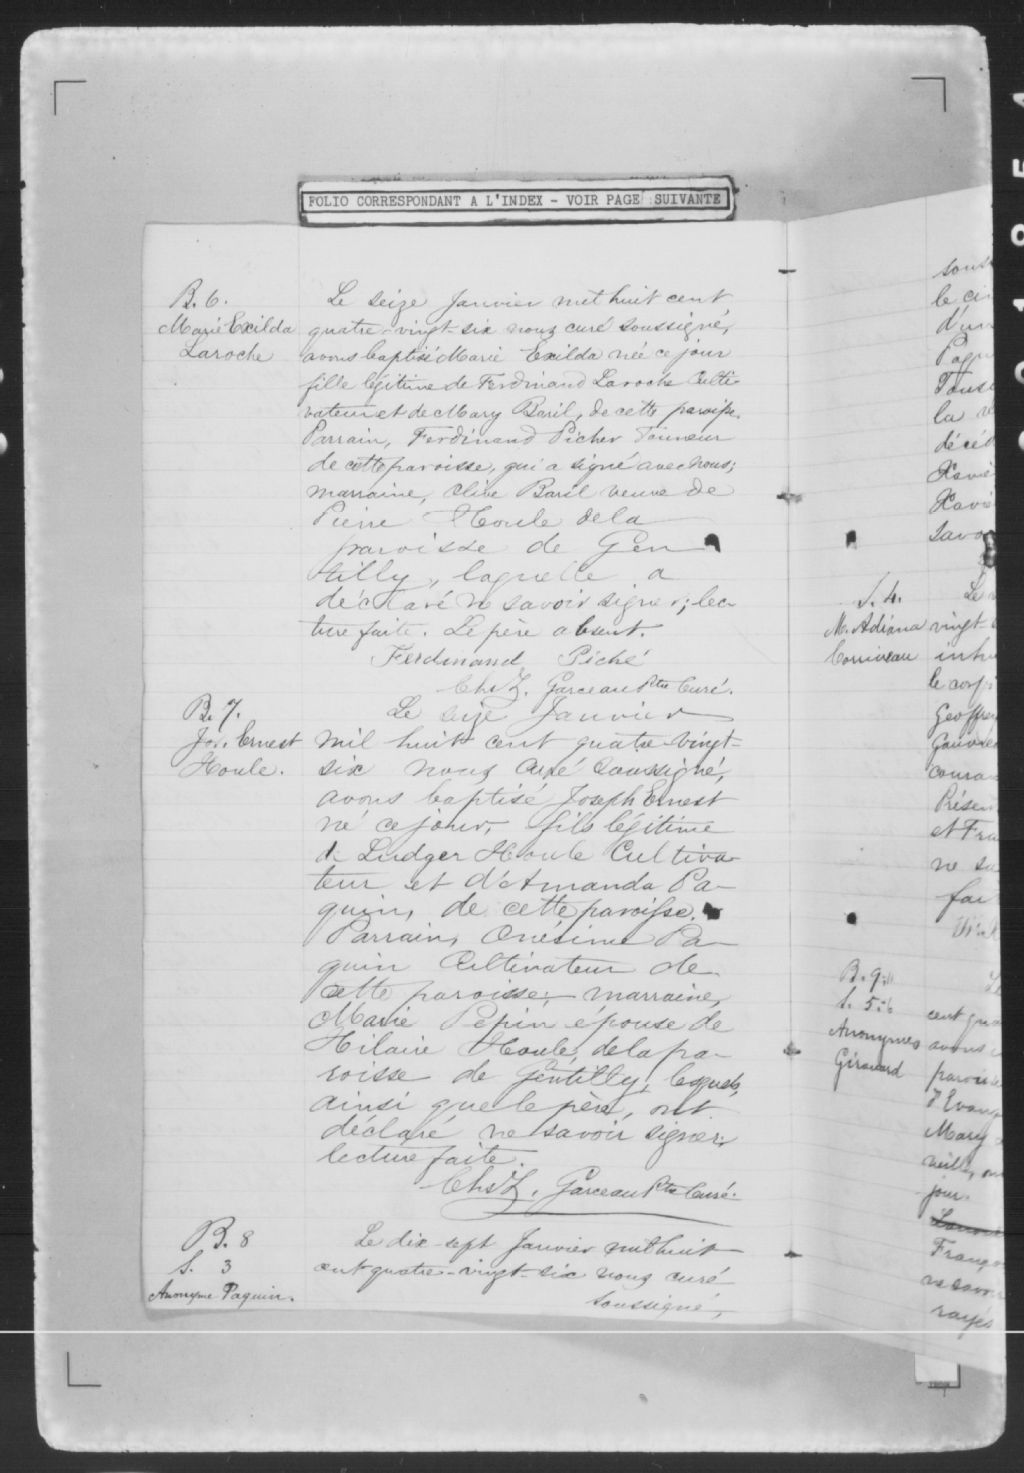 FOLIO CORRESPONDANT A L'INDEX - VOIR PAGE SUIVANTE
B. 6.
Marie Exilda
Laroche
Le seize Janvier mil huit cent
quatre-vingt-six nous curé soussigné,
avons baptisé Marie Exilda née ce jour
fille légitime de Ferdinand Laroche Culti-
vateur et de Mary Baril, de cette paroisse.
Parrain, Ferdinand Picher Tanneur
de cette paroisse, qui a signé avec nous;
marraine, Olive Baril veuve de
Pierre Houle de la
paroisse de Gen
tilly, laquelle a
déclaré ne savoir signer; lec-
ture faite. Le père absent.
Ferdinand Piché
Chs Z. Garceau Ptre Curé.
B. 7.
Jos. Ernest
Houle.
Le seize Janvier
mil huit cent quatre-vingt-
six nous curé soussigné,
avons baptisé Joseph Ernest
né ce jour, fils légitime
de Ludger Houle Cultiva-
teur et d'Amanda Pa-
quin, de cette paroisse.
Parrain, Onésime Pa-
quin Cultivateur de
cette paroisse; marraine,
Marie Pepin épouse de
Hilaire Houle, de la pa-
roisse de Gentilly, lesquels,
ainsi que le père, ont
déclaré ne savoir signer;
lecture faite.
Chs Z. Garceau Ptre Curé.
B. 8
S. 3
Anonyme Paquin.
Le dix-sept Janvier mil huit
cent quatre-vingt-six nous curé
soussigné,
S. 4.
M. Adiana
Corriveau
B. 9
S. 5
Anonymes
Girouard
le
d'un
la
vingt
le corps
ne
cent
avons
Mary
jour.